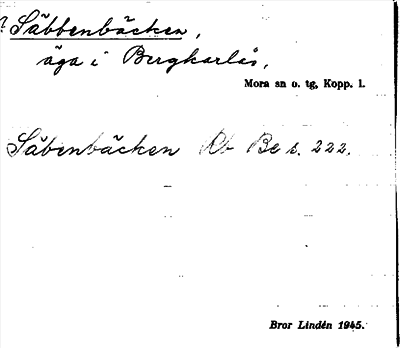 ? Säbbenbäcken,
äga i Bergkarlås,
Mora sn o. tg, Kopp. l.
Säbenbäcken Rb Be s. 222.
Bror Lindén 1945.